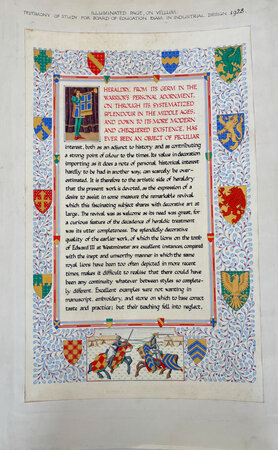 TESTIMONY OF STUDY FOR BOARD OF EDUCATION EXAM. IN INDUSTRIAL DESIGN 1928
ILLUMINATED PAGE, ON VELLUM.
HERALDRY, FROM ITS GERM IN THE
WARRIOR'S PERSONAL ADORNMENT,
ON THROUGH ITS SYSTEMATIZED
SPLENDOUR IN THE MIDDLE AGES,
AND DOWN TO ITS MORE MODERN
AND CHEQUERED EXISTENCE, HAS
EVER BEEN AN OBJECT OF PECULIAR
interest, both as an adjunct to history and as contributing
a strong point of colour to the times. Its value in decoration
importing as it does a note of personal, historical interest
hardly to be had in another way, can scarcely be over-
estimated. It is therefore to the artistic side of heraldry
that the present work is devoted, as the expression of a
desire to assist in some measure the remarkable revival
which this fascinating subject shares with decorative art at
large. The revival was as welcome as its need was great, for
a curious feature of the decadence of heraldic treatment
was its utter completeness. The splendidly decorative
quality of the earlier work, of which the lions on the tomb
of Edward III at Westminster are excellent instances, compared
with the inept and unworthy manner in which the same
royal lions have been too often depicted in more recent
times, makes it difficult to realise that there could have
been any continuity whatever between styles so complete-
ly different. Excellent examples were not wanting in
manuscript, embroidery, and stone on which to base correct
taste and practice; but their teaching fell into neglect,